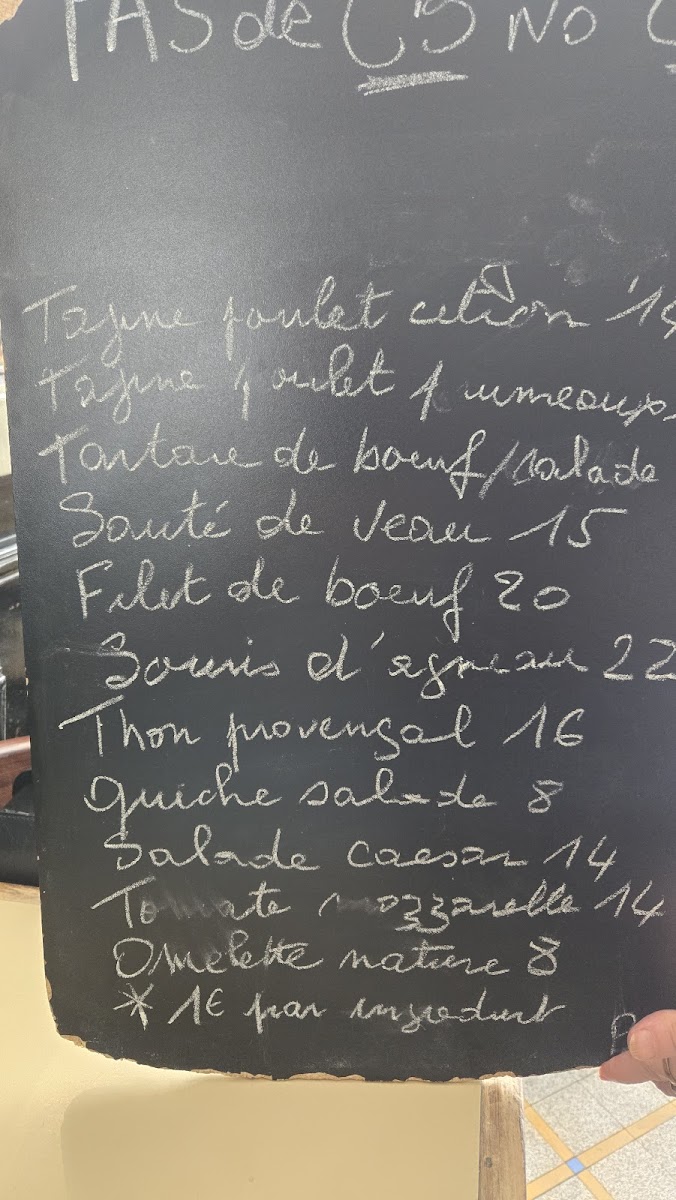 PAS de CB NO
Tajine poulet citron 14
Tajine poulet prumeaups
Tartare de boeuf/salade
Sauté de veau 15
Filet de boeuf 20
Souris d'agneau 22
Thon provençal 16
quiche salade 8
Salade caesar 14
Tomate mozzarelle 14
Omelette nature 8
* 1€ par ingrédient